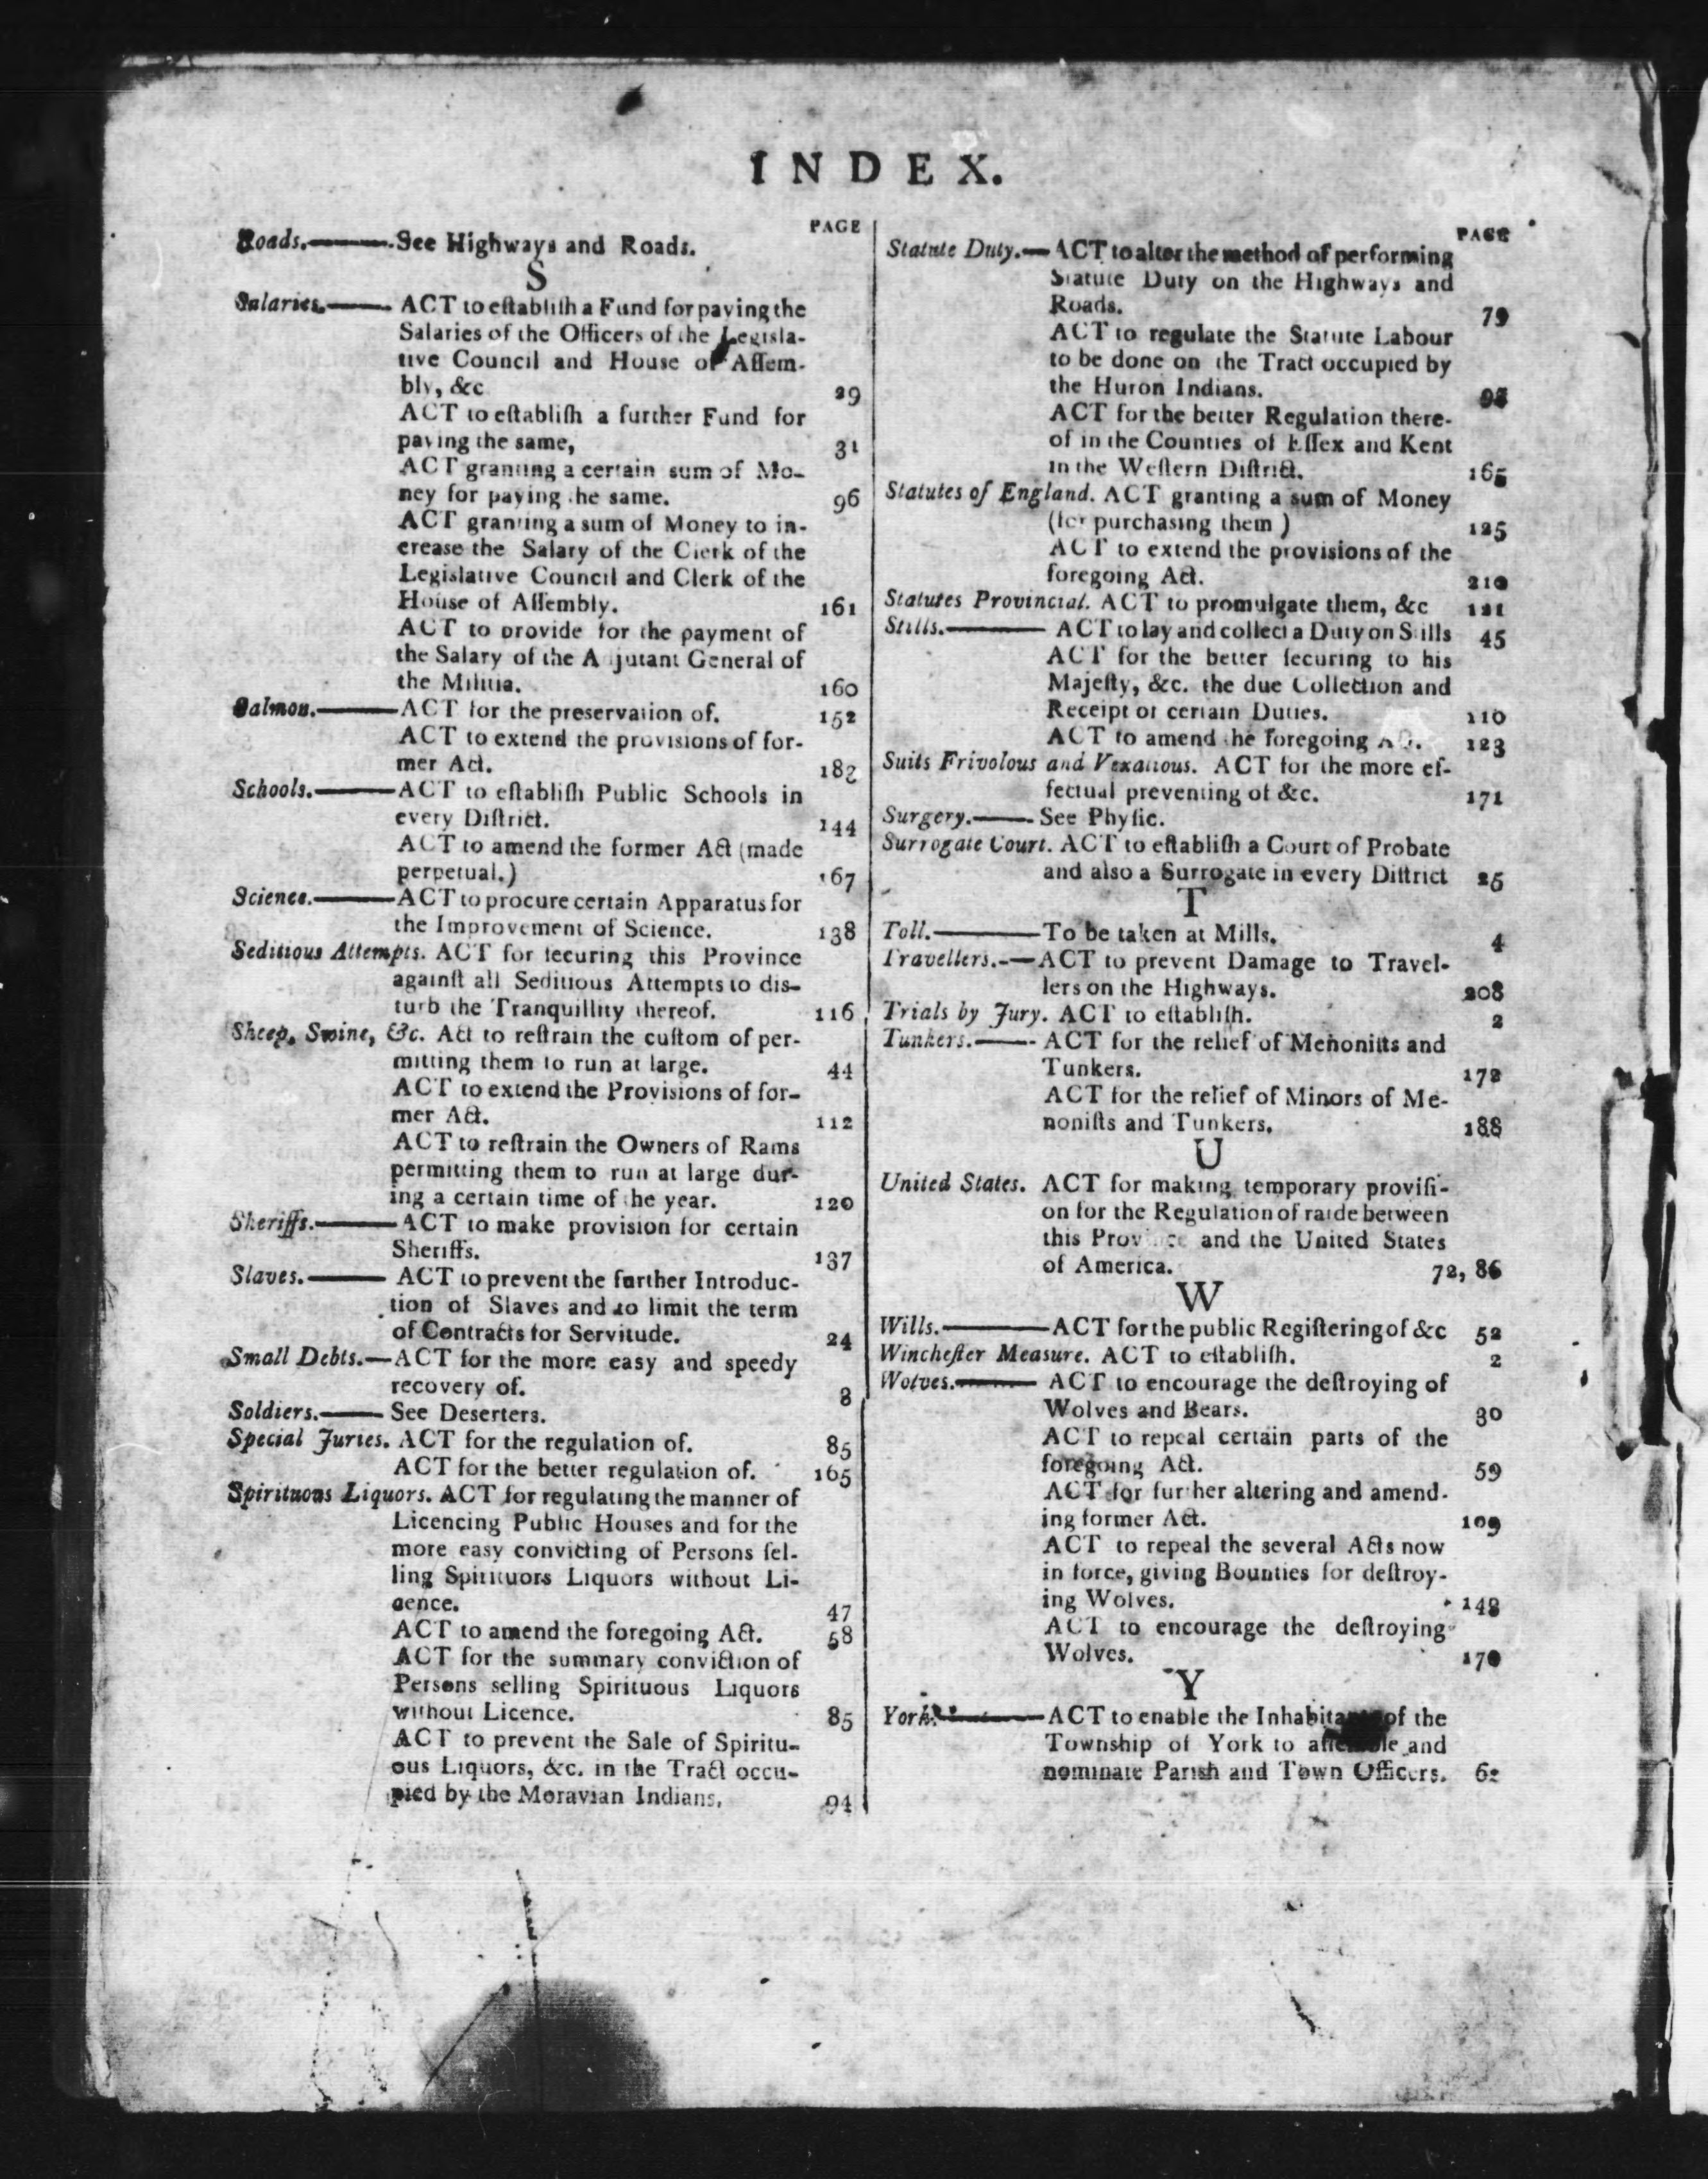 INDEX.
PAGE
Roads.———.See Highways and Roads.
S
Salaries.——— ACT to eſtabliſh a Fund for paying the
Salaries of the Officers of the Legisla-
tive Council and House of Aſſem-
bly, &c 29
ACT to eſtabliſh a further Fund for
paying the same, 31
ACT granting a certain sum of Mo-
ney for paying the same. 96
ACT granting a sum of Money to in-
crease the Salary of the Clerk of the
Legislative Council and Clerk of the
House of Aſſembly. 161
ACT to provide for the payment of
the Salary of the Adjutant General of
the Militia. 160
Salmon.———ACT for the preservation of. 152
ACT to extend the provisions of for-
mer Act. 182
Schools.———ACT to eſtabliſh Public Schools in
every Diſtrict. 144
ACT to amend the former Act (made
perpetual.) 167
Science.———ACT to procure certain Apparatus for
the Improvement of Science. 138
Seditious Attempts. ACT for ſecuring this Province
againſt all Seditious Attempts to dis-
turb the Tranquillity thereof. 116
Sheep, Swine, &c. Act to reſtrain the cuſtom of per-
mitting them to run at large. 44
ACT to extend the Provisions of for-
mer Act. 112
ACT to reſtrain the Owners of Rams
permitting them to run at large dur-
ing a certain time of the year. 120
Sheriffs.———ACT to make provision for certain
Sheriffs. 137
Slaves.——— ACT to prevent the further Introduc-
tion of Slaves and to limit the term
of Contracts for Servitude. 24
Small Debts.—ACT for the more easy and speedy
recovery of. 8
Soldiers.—— See Deserters.
Special Juries. ACT for the regulation of. 85
ACT for the better regulation of. 165
Spirituous Liquors. ACT for regulating the manner of
Licencing Public Houses and for the
more easy convicting of Persons ſel-
ling Spirituors Liquors without Li-
cence. 47
ACT to amend the foregoing Act. 58
ACT for the summary conviction of
Persons selling Spirituous Liquors
without Licence. 85
ACT to prevent the Sale of Spiritu-
ous Liquors, &c. in the Tract occu-
pied by the Moravian Indians. 94
PAGE
Statute Duty.—ACT to alter the method of performing
Statute Duty on the Highways and
Roads. 79
ACT to regulate the Statute Labour
to be done on the Tract occupied by
the Huron Indians.
ACT for the better Regulation there-
of in the Counties of Eſſex and Kent
in the Weſtern Diſtrict. 165
Statutes of England. ACT granting a sum of Money
(for purchasing them) 125
ACT to extend the provisions of the
foregoing Act. 210
Statutes Provincial. ACT to promulgate them, &c 121
Stills.——— ACT to lay and collect a Duty on Stills 45
ACT for the better ſecuring to his
Majeſty, &c. the due Collection and
Receipt of certain Duties. 110
ACT to amend the foregoing Act. 123
Suits Frivolous and Vexatious. ACT for the more ef-
fectual preventing of &c. 171
Surgery.——. See Phyſic.
Surrogate Court. ACT to eſtabliſh a Court of Probate
and also a Surrogate in every Diſtrict 25
T
Toll.———To be taken at Mills. 4
Travellers.-—ACT to prevent Damage to Travel-
lers on the Highways. 208
Trials by Jury. ACT to eſtabliſh. 2
Tunkers.——- ACT for the relief of Menoniſts and
Tunkers. 172
ACT for the relief of Minors of Me-
noniſts and Tunkers. 188
U
United States. ACT for making temporary proviſi-
on for the Regulation of ra​de between
this Province and the United States
of America. 72, 86
W
Wills.———ACT for the public Regiſtering of &c 52
Wincheſter Measure. ACT to eſtabliſh. 2
Wolves.——— ACT to encourage the deſtroying of
Wolves and Bears. 30
ACT to repeal certain parts of the
foregoing Act. 59
ACT for further altering and amend-
ing former Act. 109
ACT to repeal the several Acts now
in force, giving Bounties for deſtroy-
ing Wolves. 148
ACT to encourage the deſtroying
Wolves. 170
Y
York.———ACT to enable the Inhabitants of the
Township of York to aſſemble and
nominate Parish and Town Officers. 62